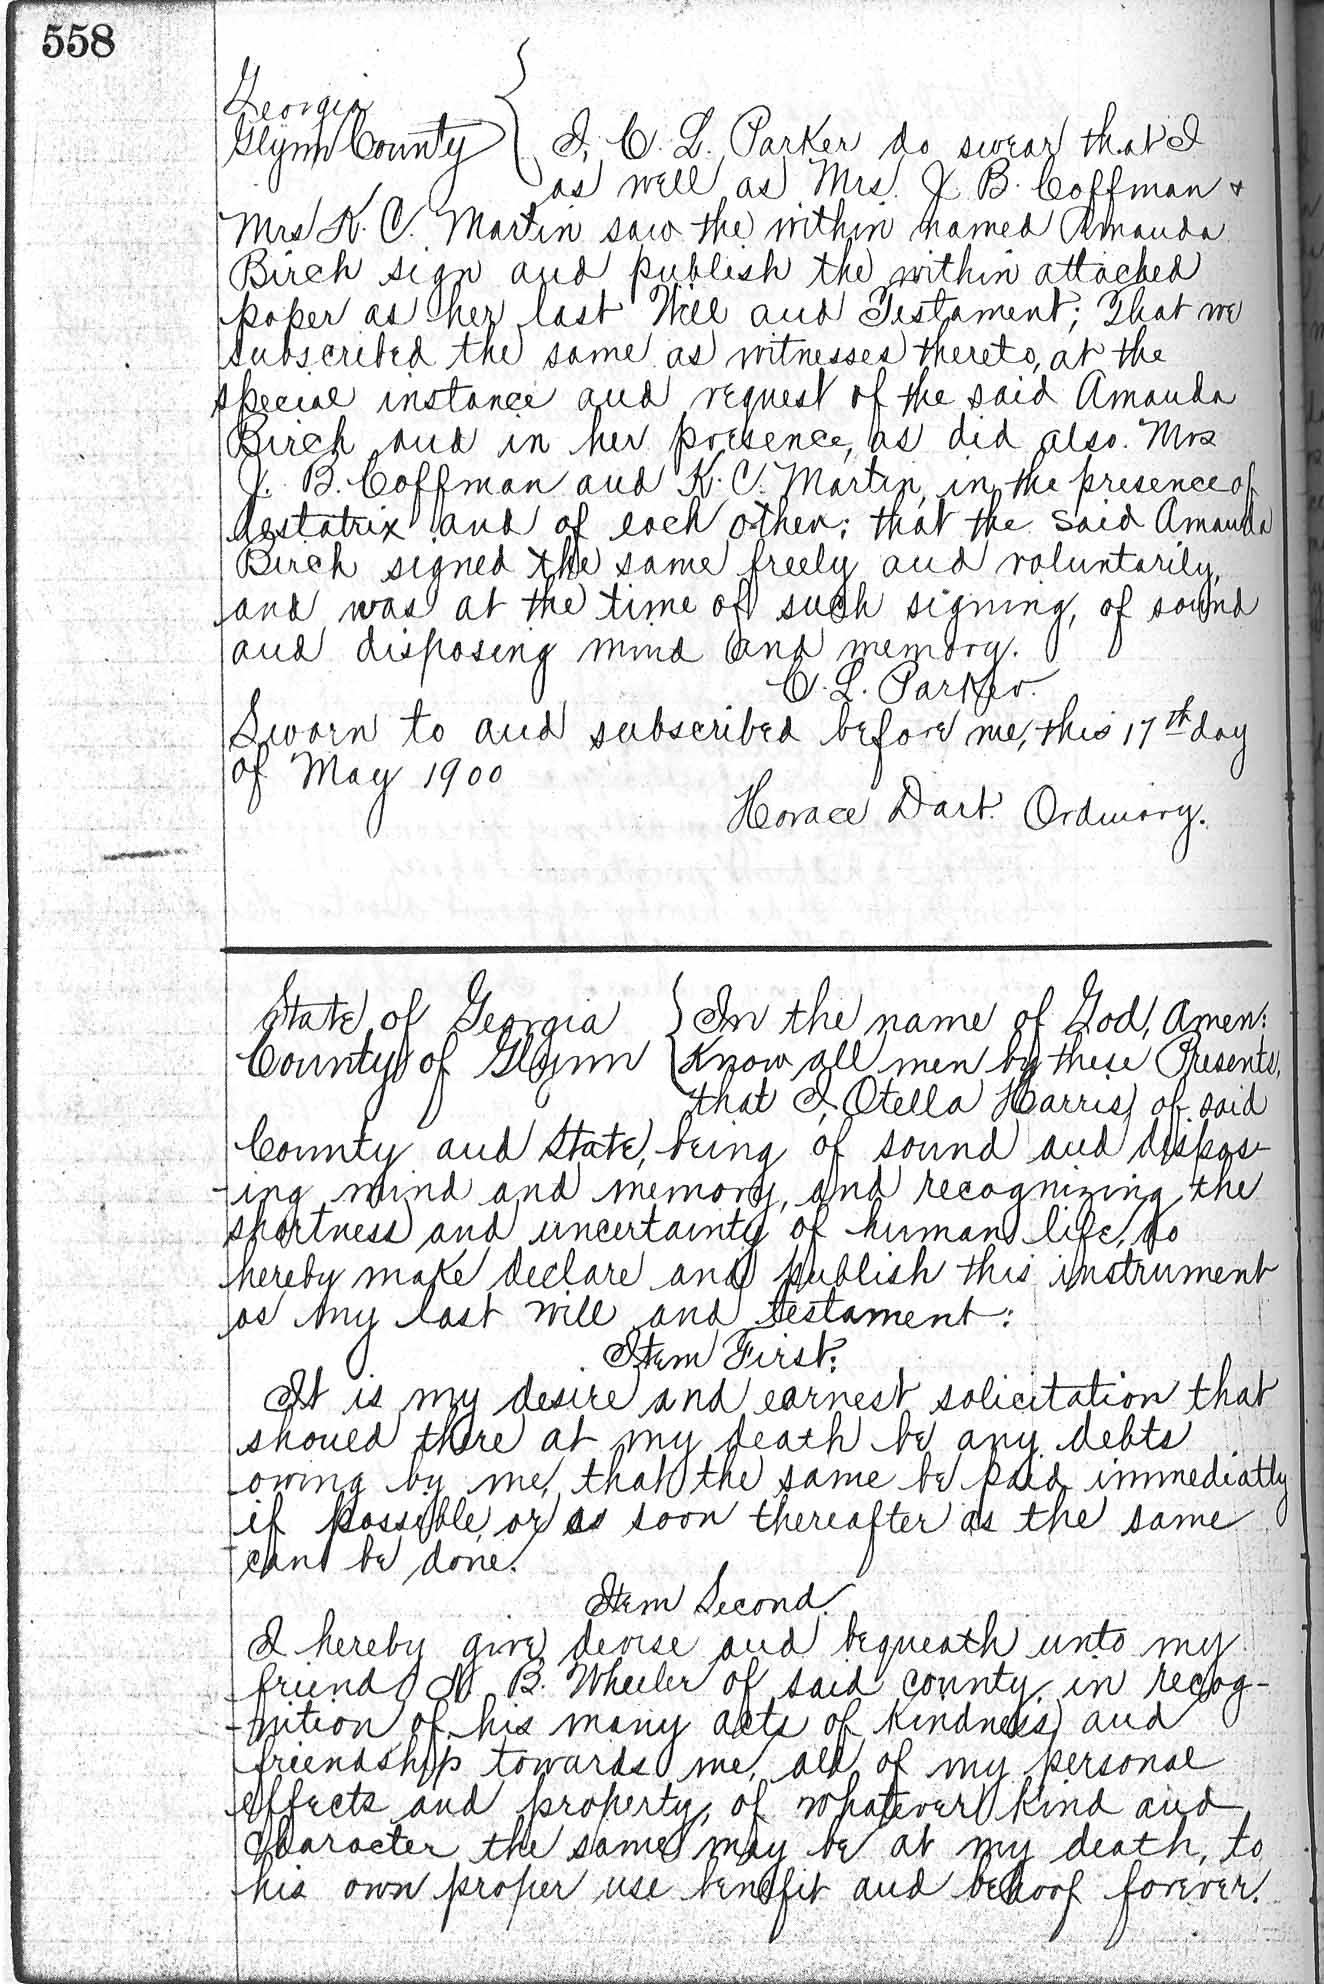 558
Georgia
Glynn County
I, C. L. Parker do swear that I
as well as Mrs. J. B. Coffman &
Mrs K. C. Martin saw the within named Amanda
Birch sign and publish the within attached
paper as her last Will and Testament; That we
subscribed the same as witnesses thereto, at the
special instance and request of the said Amanda
Birch and in her presence, as did also Mrs
J. B. Coffman and K. C. Martin, in the presence of
testatrix and of each other; that the said Amanda
Birch signed the same freely and voluntarily,
and was at the time of such signing, of sound
and disposing mind and memory.
C. L. Parker.
Sworn to and subscribed before me, this 17th day
of May 1900
Horace Dart. Ordinary.
State of Georgia
County of Glynn
In the name of God, Amen:
Know all men by these Presents,
that I, Otella Harris, of said
County and State, being of sound and dispos-
-ing mind and memory, and recognizing the
shortness and uncertainty of human life, do
hereby make declare and publish this instrument
as my last will and testament:
Item First:
It is my desire and earnest solicitation that
should there at my death be any debts
owing by me, that the same be paid immediatly
if possible, or as soon thereafter as the same
can be done.
Item Second.
I hereby give, devise and bequeath unto my
friend N. B. Wheeler of said county, in recog-
-nition of his many acts of kindness, and
friendship towards me, all of my personal
effects and property, of whatever kind and
character the same may be at my death, to
his own proper use benefit and behoof forever.